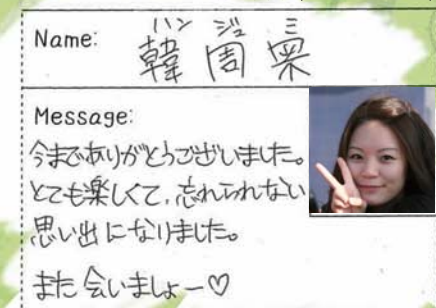 ハン ジュ ミ
Name: 韓周冞
Message:
今までありがとうございました。
とても楽しくて、忘れられない
思い出になりました。
また会いましょー♡